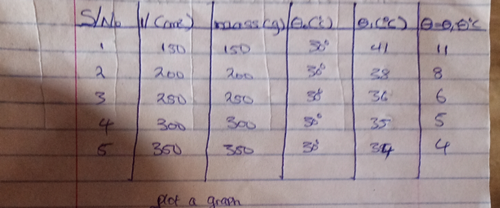 S/No V(cm³) mass(g) θ₀(°c) θ₁(°C) θ=θ₁-θ₀°C
1 150 150 30° 41 11
2 200 200 30° 38 8
3 250 250 30° 36 6
4 300 300 30° 35 5
5 350 350 30° 34 4
plot a graph